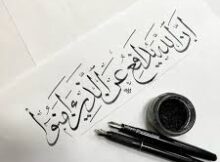 إن الله يدافع عن الذين آمنوا